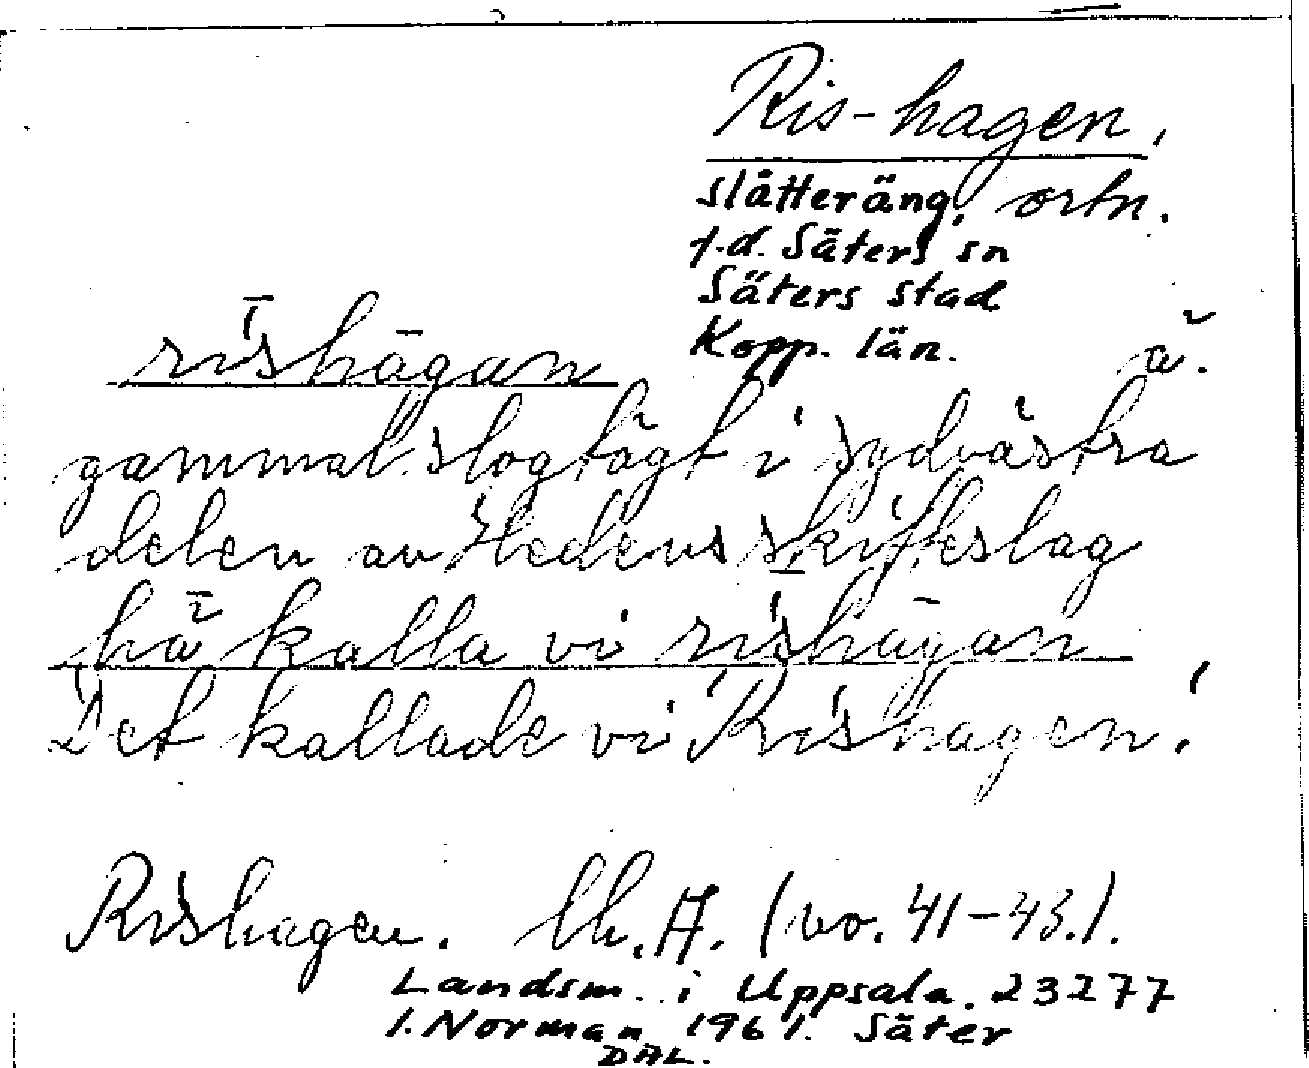 Ris-hagen,
slåtteräng, ortn.
f.d. Säters sn
Säters stad
Kopp. län.
rīshāgan ă.
gammal slogtägt i sydvästra
delen av Hedens skifteslag
hä kalla vi rishāgan
Det kallade vi 'Rishagen.'
Rishagen. (vo. 41-43.).
Landsm. i Uppsala. 23277
I. Norman 1961. Säter
DAL.